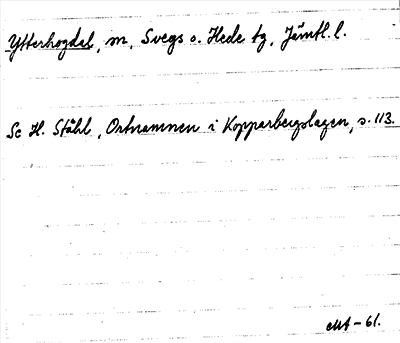 Ytterhogdal, sn, Svegs o. Hede tg, Jämtl. l.
Se H. Ståhl, Ortnamnen i Kopparbergslagen, s. 113.
EMA-61.